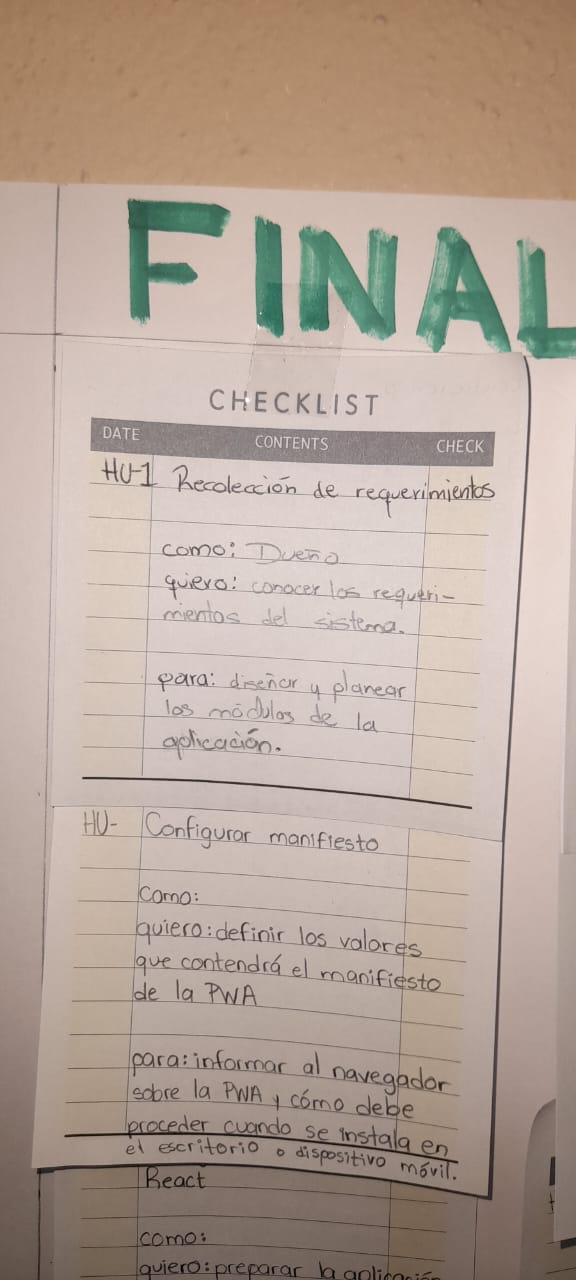 FINAL
CHECKLIST
DATE CONTENTS CHECK
HU-1 Recolección de requerimientos
como: Dueño
quiero: conocer los requeri-
mientos del sistema.
para: diseñar y planear
los módulos de la
aplicación.
HU- Configurar manifiesto
como:
quiero: definir los valores
que contendrá el manifiesto
de la PWA
para: informar al navegador
sobre la PWA y cómo debe
proceder cuando se instala en
el escritorio o dispositivo móvil.
React
como:
quiero: preparar la aplicación